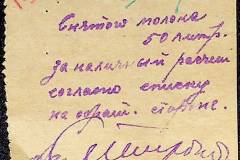 Снятого молока
50 литр.
за наличный расчет
согласно списку
на обрат. стороне.